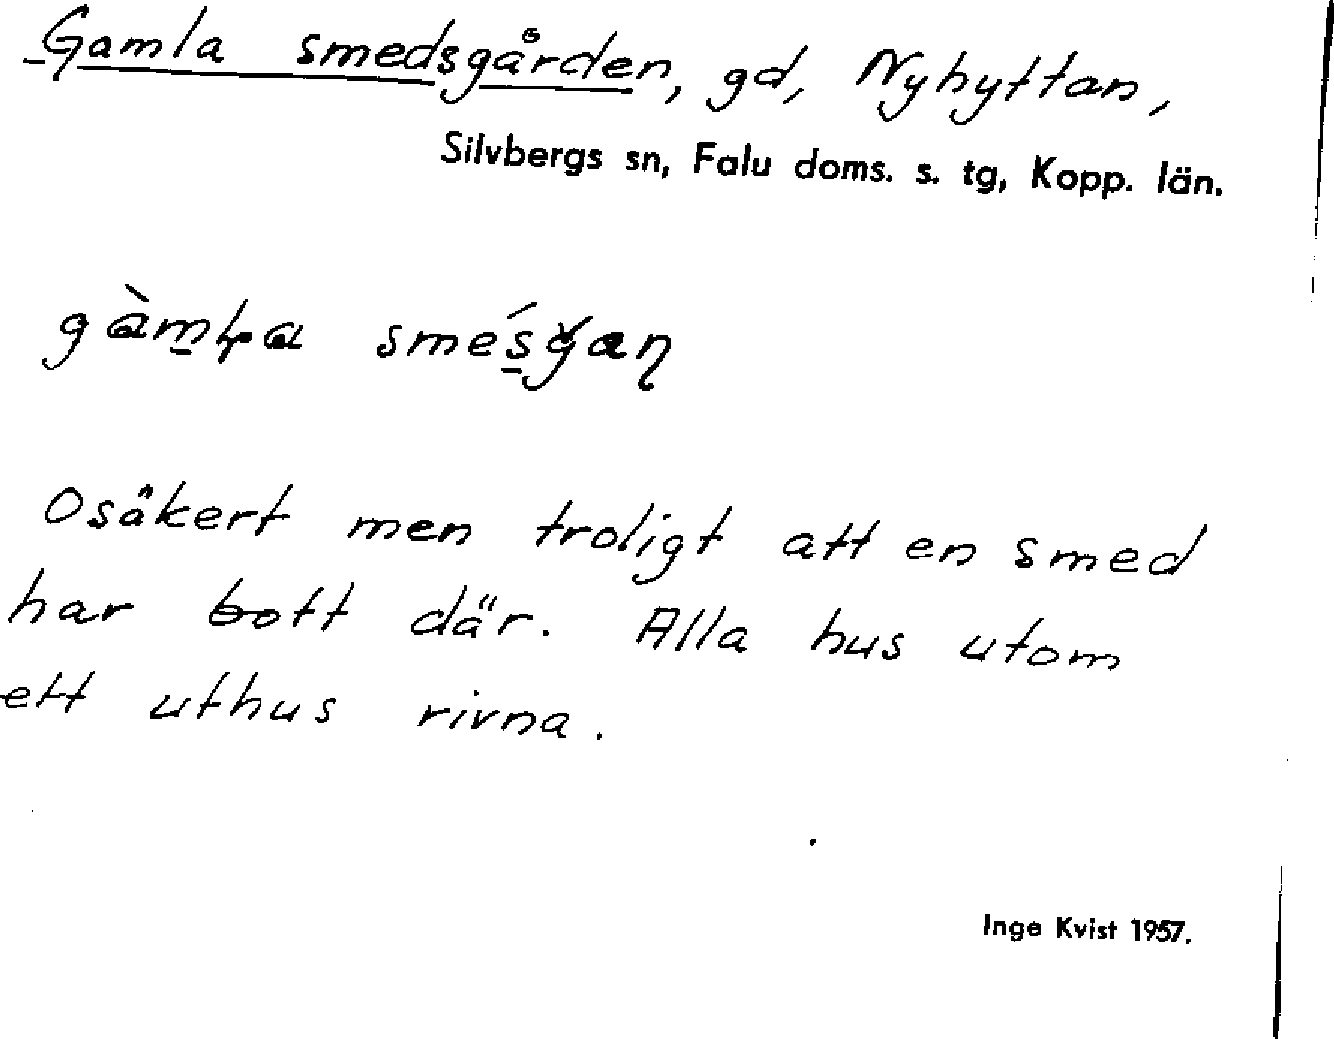 Gamla smedsgården, gd, Nyhyttan,
Silvbergs sn, Falu doms. s. tg, Kopp. län.
Osäkert men troligt att en smed
har bott där. Alla hus utom
ett uthus rivna.
Inge Kvist 1957.